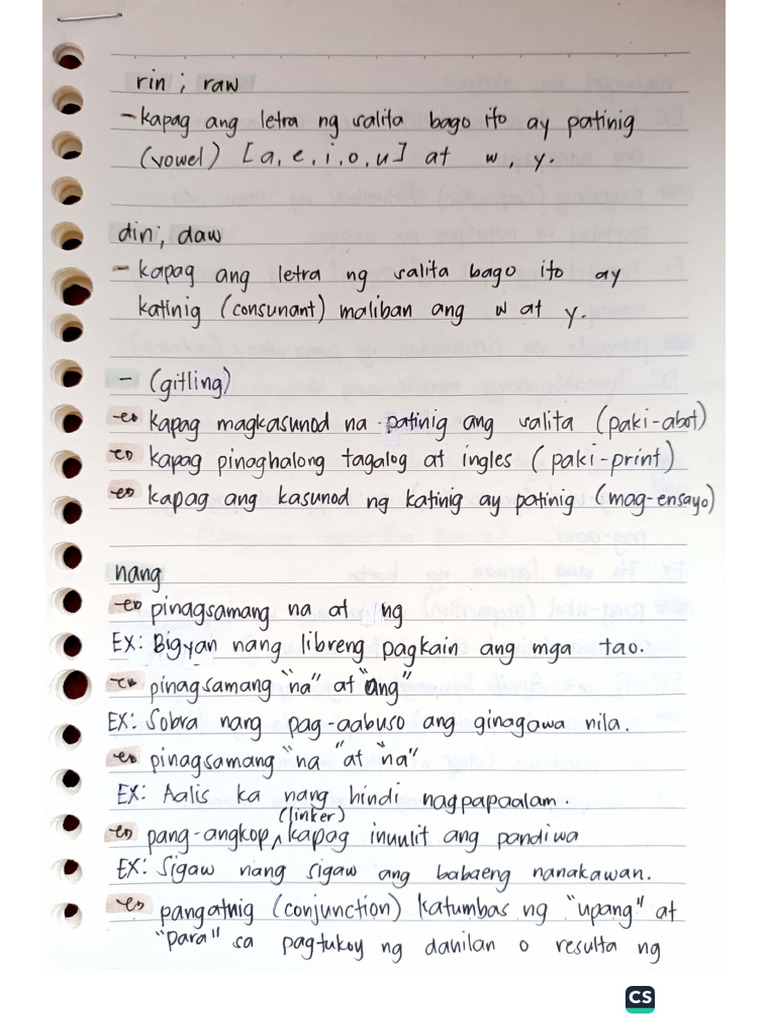 rin ; raw
- kapag ang letra ng salita bago ito ay patinig
(vowel) [a, e, i, o, u] at w, y.
din ; daw
- kapag ang letra ng salita bago ito ay
katinig (consunant) maliban ang w at y.
- (gitling)
kapag magkasunod na patinig ang salita (paki-abot)
kapag pinaghalong tagalog at ingles (paki-print)
kapag ang kasunod ng katinig ay patinig (mag-ensayo)
nang
pinagsamang na at ng
EX: Bigyan nang libreng pagkain ang mga tao.
pinagsamang "na" at "ang"
EX: Sobra nang pag-aabuso ang ginagawa nila.
pinagsamang "na" at "na"
EX: Aalis ka nang hindi nagpapaalam.
(linker)
pang-angkop ^ kapag inuulit ang pandiwa
EX: Sigaw nang sigaw ang babaeng nanakawan.
pangatnig (conjunction) katumbas ng "upang" at
"para" sa pagtukoy ng dahilan o resulta ng
CS